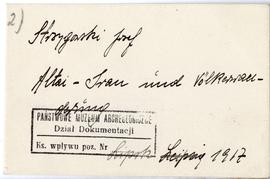 2)
Strzygowski Josef
Altai - Iran und Völkerwan-
derung
PAŃSTWOWE MUZEUM ARCHEOLOGICZNE
Dział Dokumentacji
Ks. wpływu poz. Nr
Leipzig 1917